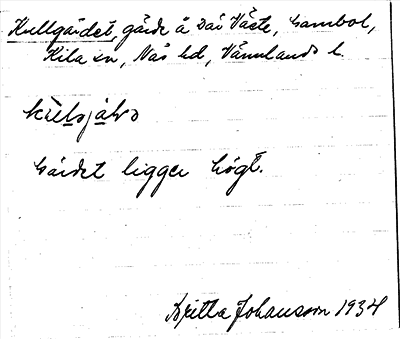 Kullgärdet, gärde å Där Väste, Gambol,
Kila sn, Näs hd, Värmlands l.
Gärdet ligger högt.
Britta Johansson 1934